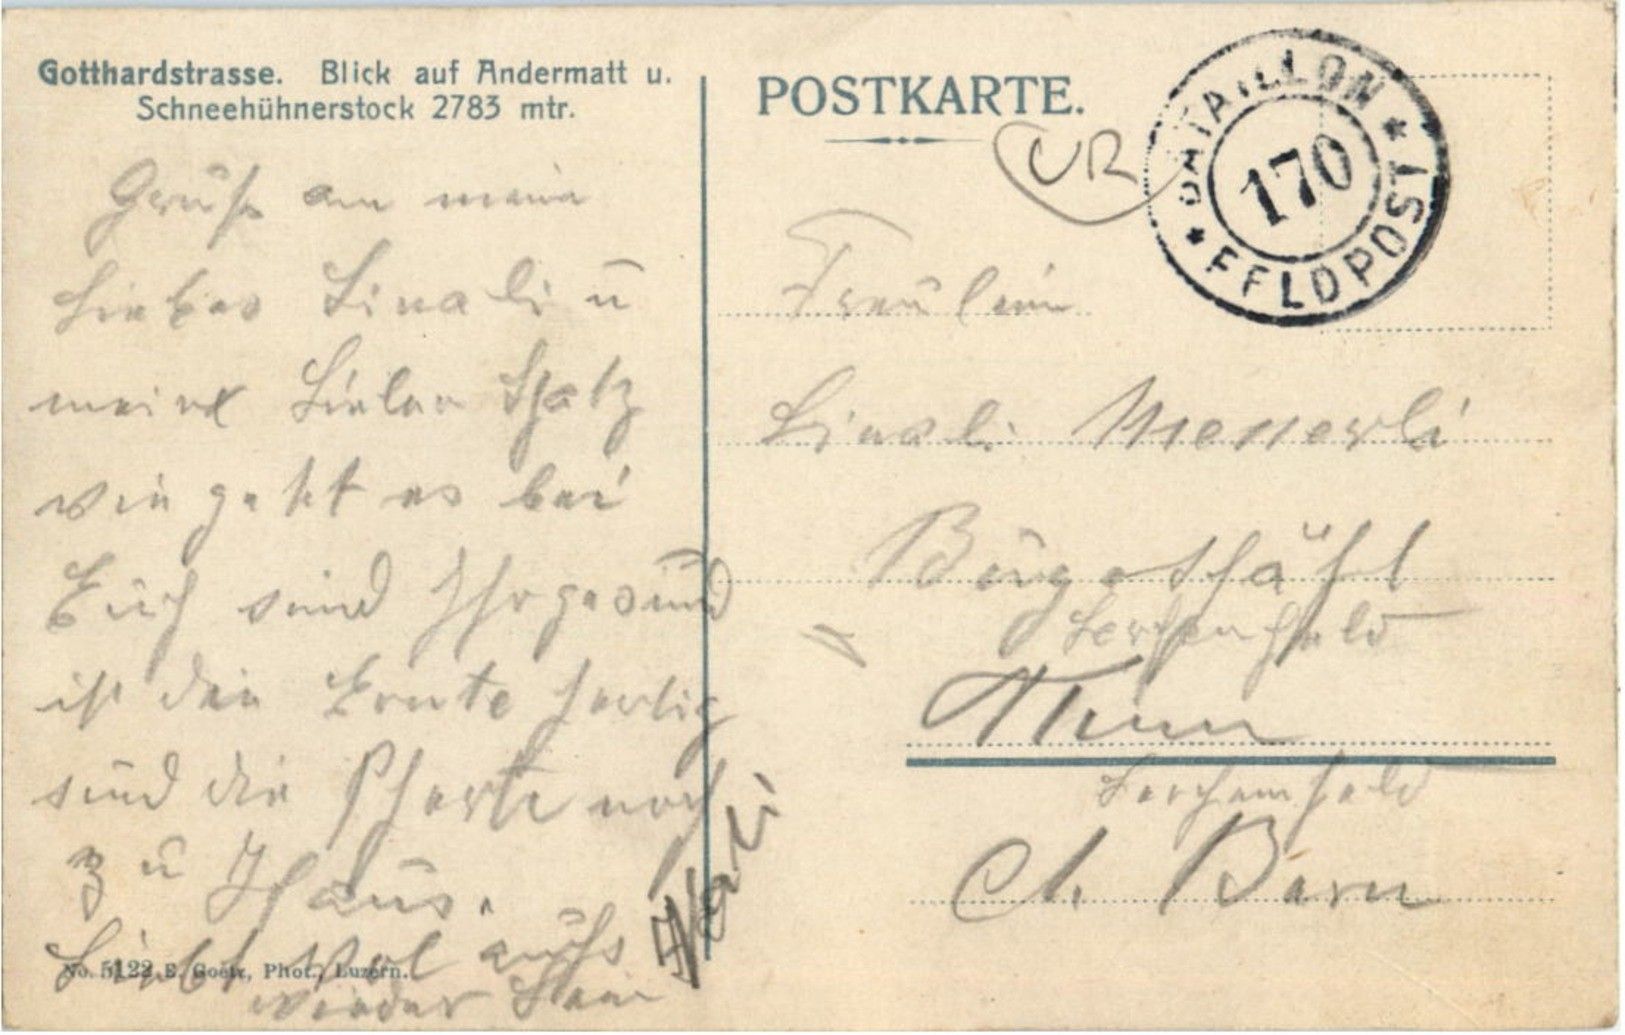 Gotthardstrasse. Blick auf Andermatt u.
Schneehühnerstock 2783 mtr.
Gruß an meine
Liebes Linali ü
meine Lieben Schatz
wie geht es bei
Euch sind Ihr gesund
ist die Ernte fertig
sind die Pferte noch
zu Haus.
Liebt aufs
wieder
No. 5122 E. Goetz, Phot., Luzern.
POSTKARTE.
UR
BATAILLON
170
* FELDPOST *
Fraulein
Linali Messerli
Lerchenfeld
Thun
Lerchenfeld
Ct. Bern